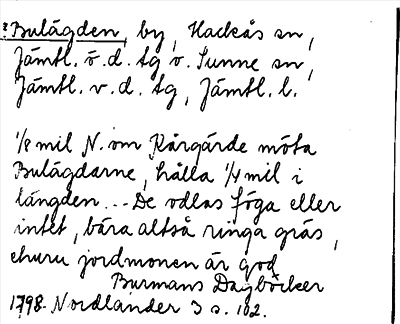 Bulägden, by, Hackås sn,
Jämtl. ö. d. tg o. Sunne sn,
Jämtl. v. d. tg, Jämtl. l.
1/8 mil N. om Rårgärde möta
Bulägdarne, hålla 1/4 mil i
längden... De odlas föga eller
intet, bära altså ringa gräs,
churu jordmonen är god
Burmans Dagböcker
1798. Nordlander 3 s. 102.